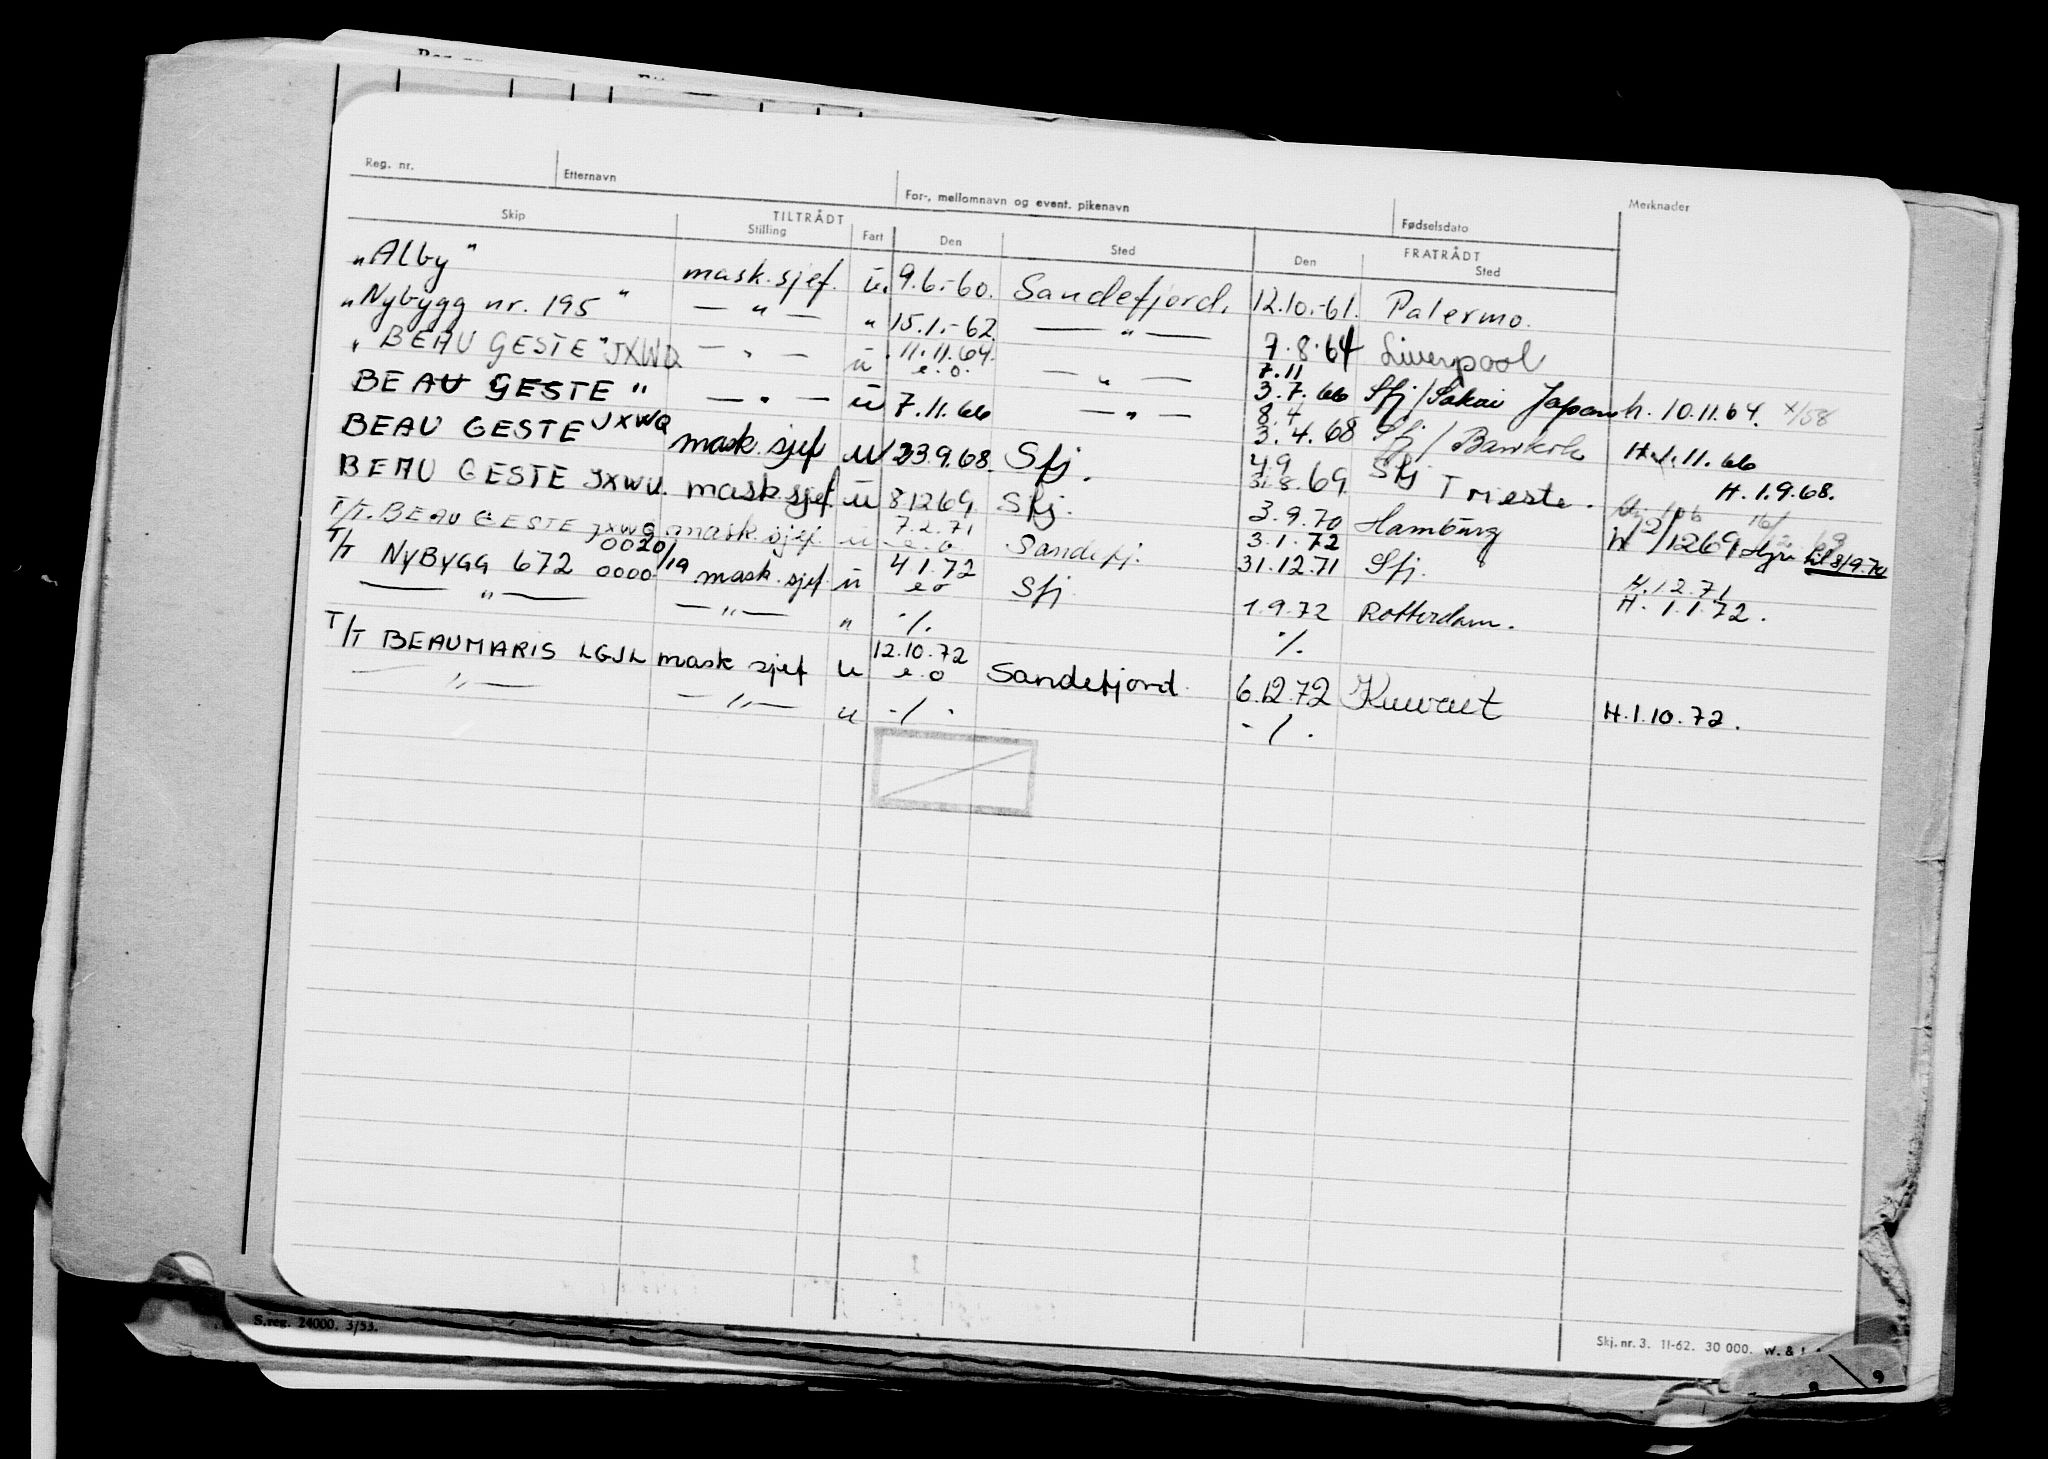 Reg. nr. Etternavn For-, mellomnavn og event. pikenavn Fødselsdato Merknader
TILTRÅDT FRATRÅDT
Skip Stilling Fart Den Sted Den Sted
"Alby" mask.sjef. u. 9.6.-60. Sandefjord. 12.10.-61. Palermo.
"Nybygg nr. 195" — " — " 15.1.-62 — " — 7.8.64 Liverpool
"BEAU GESTE" JXWQ — " — u 11.11.64. e.o. — " — 7.11 3.7.66 Sfj/Sakai Japan h. 10.11.64. x/58
BEAU GESTE" — " — u 7.11.66 — " — 8.4 3.4.68 Sfj/ H.1.11.66
BEAU GESTE JXWQ mask.sjef u 23.9.68. Sfj. 4.9 31.8.69. Sfj Trieste. H.1.9.68.
BEAU GESTE JXWU. mask.sjef. u 81269 Sfj. 3.9.70 Hamburg 2/1269 Hyre til 8/9.70
T/T. BEAU GESTE JXWQ mask.sjef u 7.2.71 e.o Sandefj. 3.1.72 31.12.71 Sfj. H.1.2.71
T/T NYBYGG 672 0020/19 0000 mask.sjef. u 4.1.72 eo Sfj 1.9.72 Rotterdam. H. 1.1.72.
— " — — " — " ./. ./.
T/T BEAUMARIS LGJL mask sjef u 12.10.72 e.o Sandefjord. 6.12.72 Kuwait H.1.10.72.
— " — — " — u ./. ./.
S.reg. 24000. 3/53.
Skj. nr. 3. 11-62. 30 000. W. &